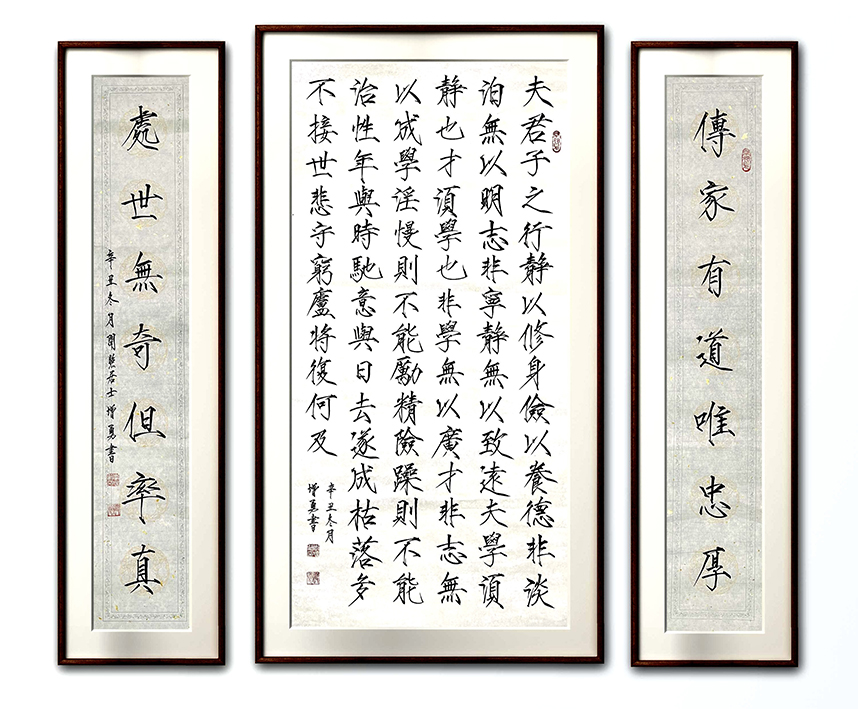 傳家有道唯忠厚
夫君子之行静以修身儉以養德非淡
泊無以明志非寧静無以致遠夫學須
静也才須學也非學無以廣才非志無
以成學淫慢則不能勵精險躁則不能
治性年與時馳意與日去遂成枯落多
不接世悲守窮廬將復何及
辛丑冬月
增勇書
處世無奇但率真
辛丑冬月居士增勇書